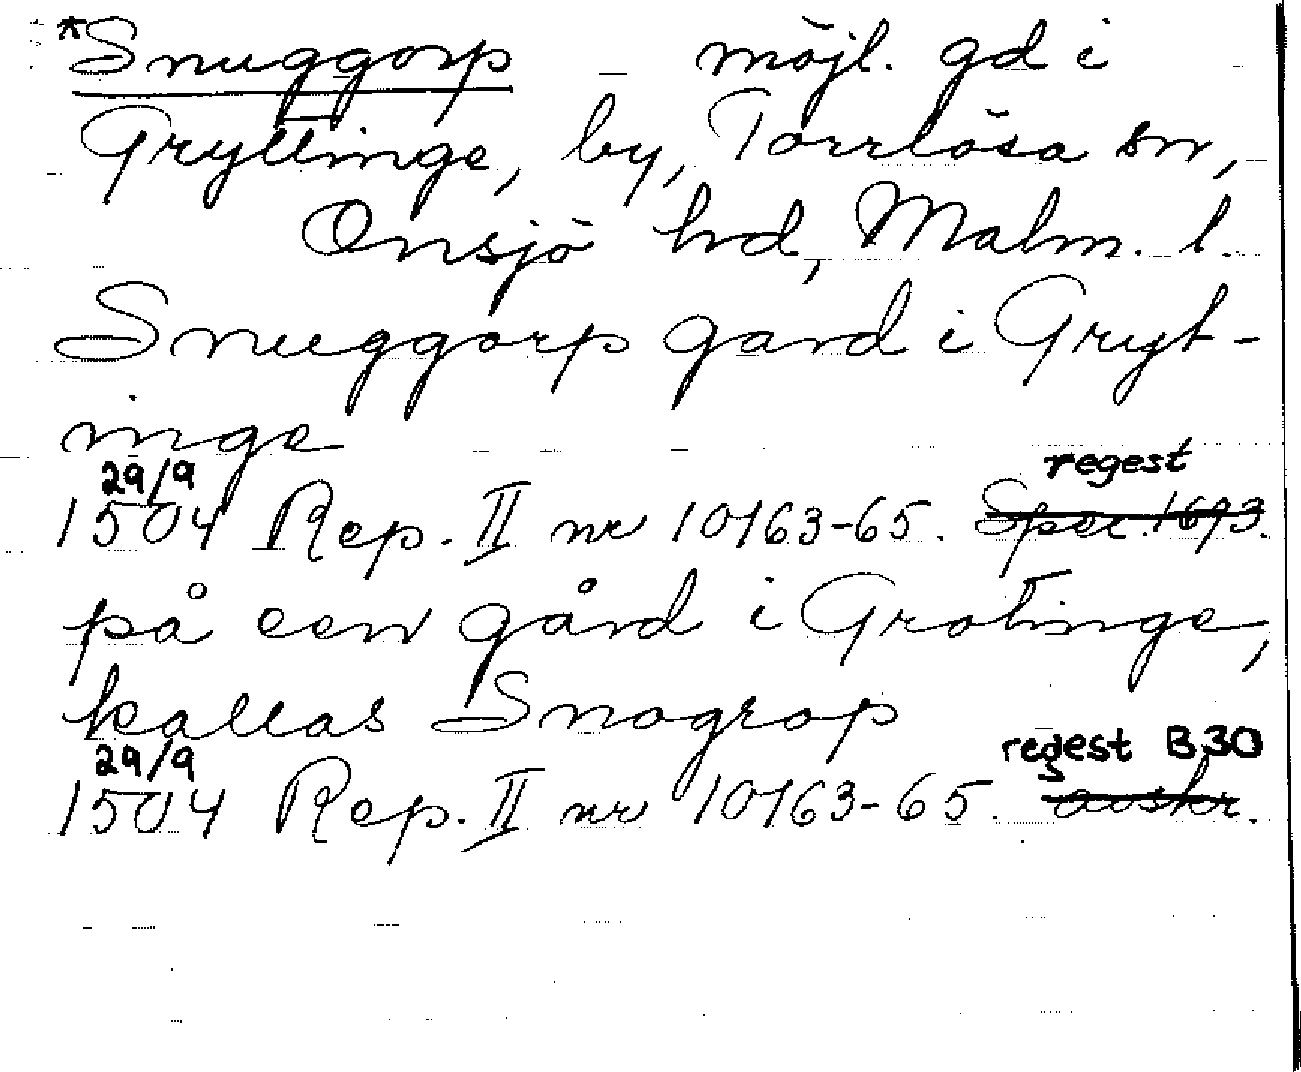 *Snuggorp – möjl. gd i
Gryttinge, by, Torrlösa sn,
Onsjö hd, Malm. l.
Snuggorp gard i Gryt-
inge
29/9 regest
1504 Rep. II nr 10163-65. Spec. 1693.
på een gård i Grotinge,
kallas Snogrop
29/9 regest B30
1504 Rep. II nr 10163-65. avskr.